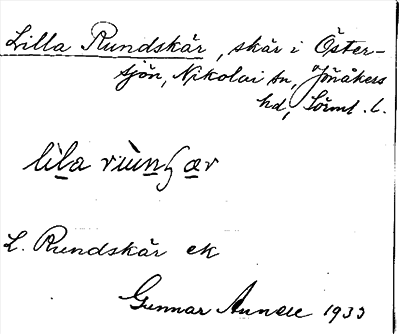 Lilla Rundskär, skär i Öster-
sjön, Nikolai sn, Jönåkers
hd, Sörml. l.
L. Rundskär ek
Gunnar 1933